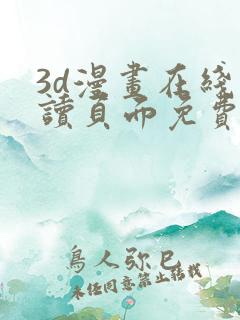 3d漫畫在綫
讀頁面免費
鳥人弥巳
未经同意禁止转载